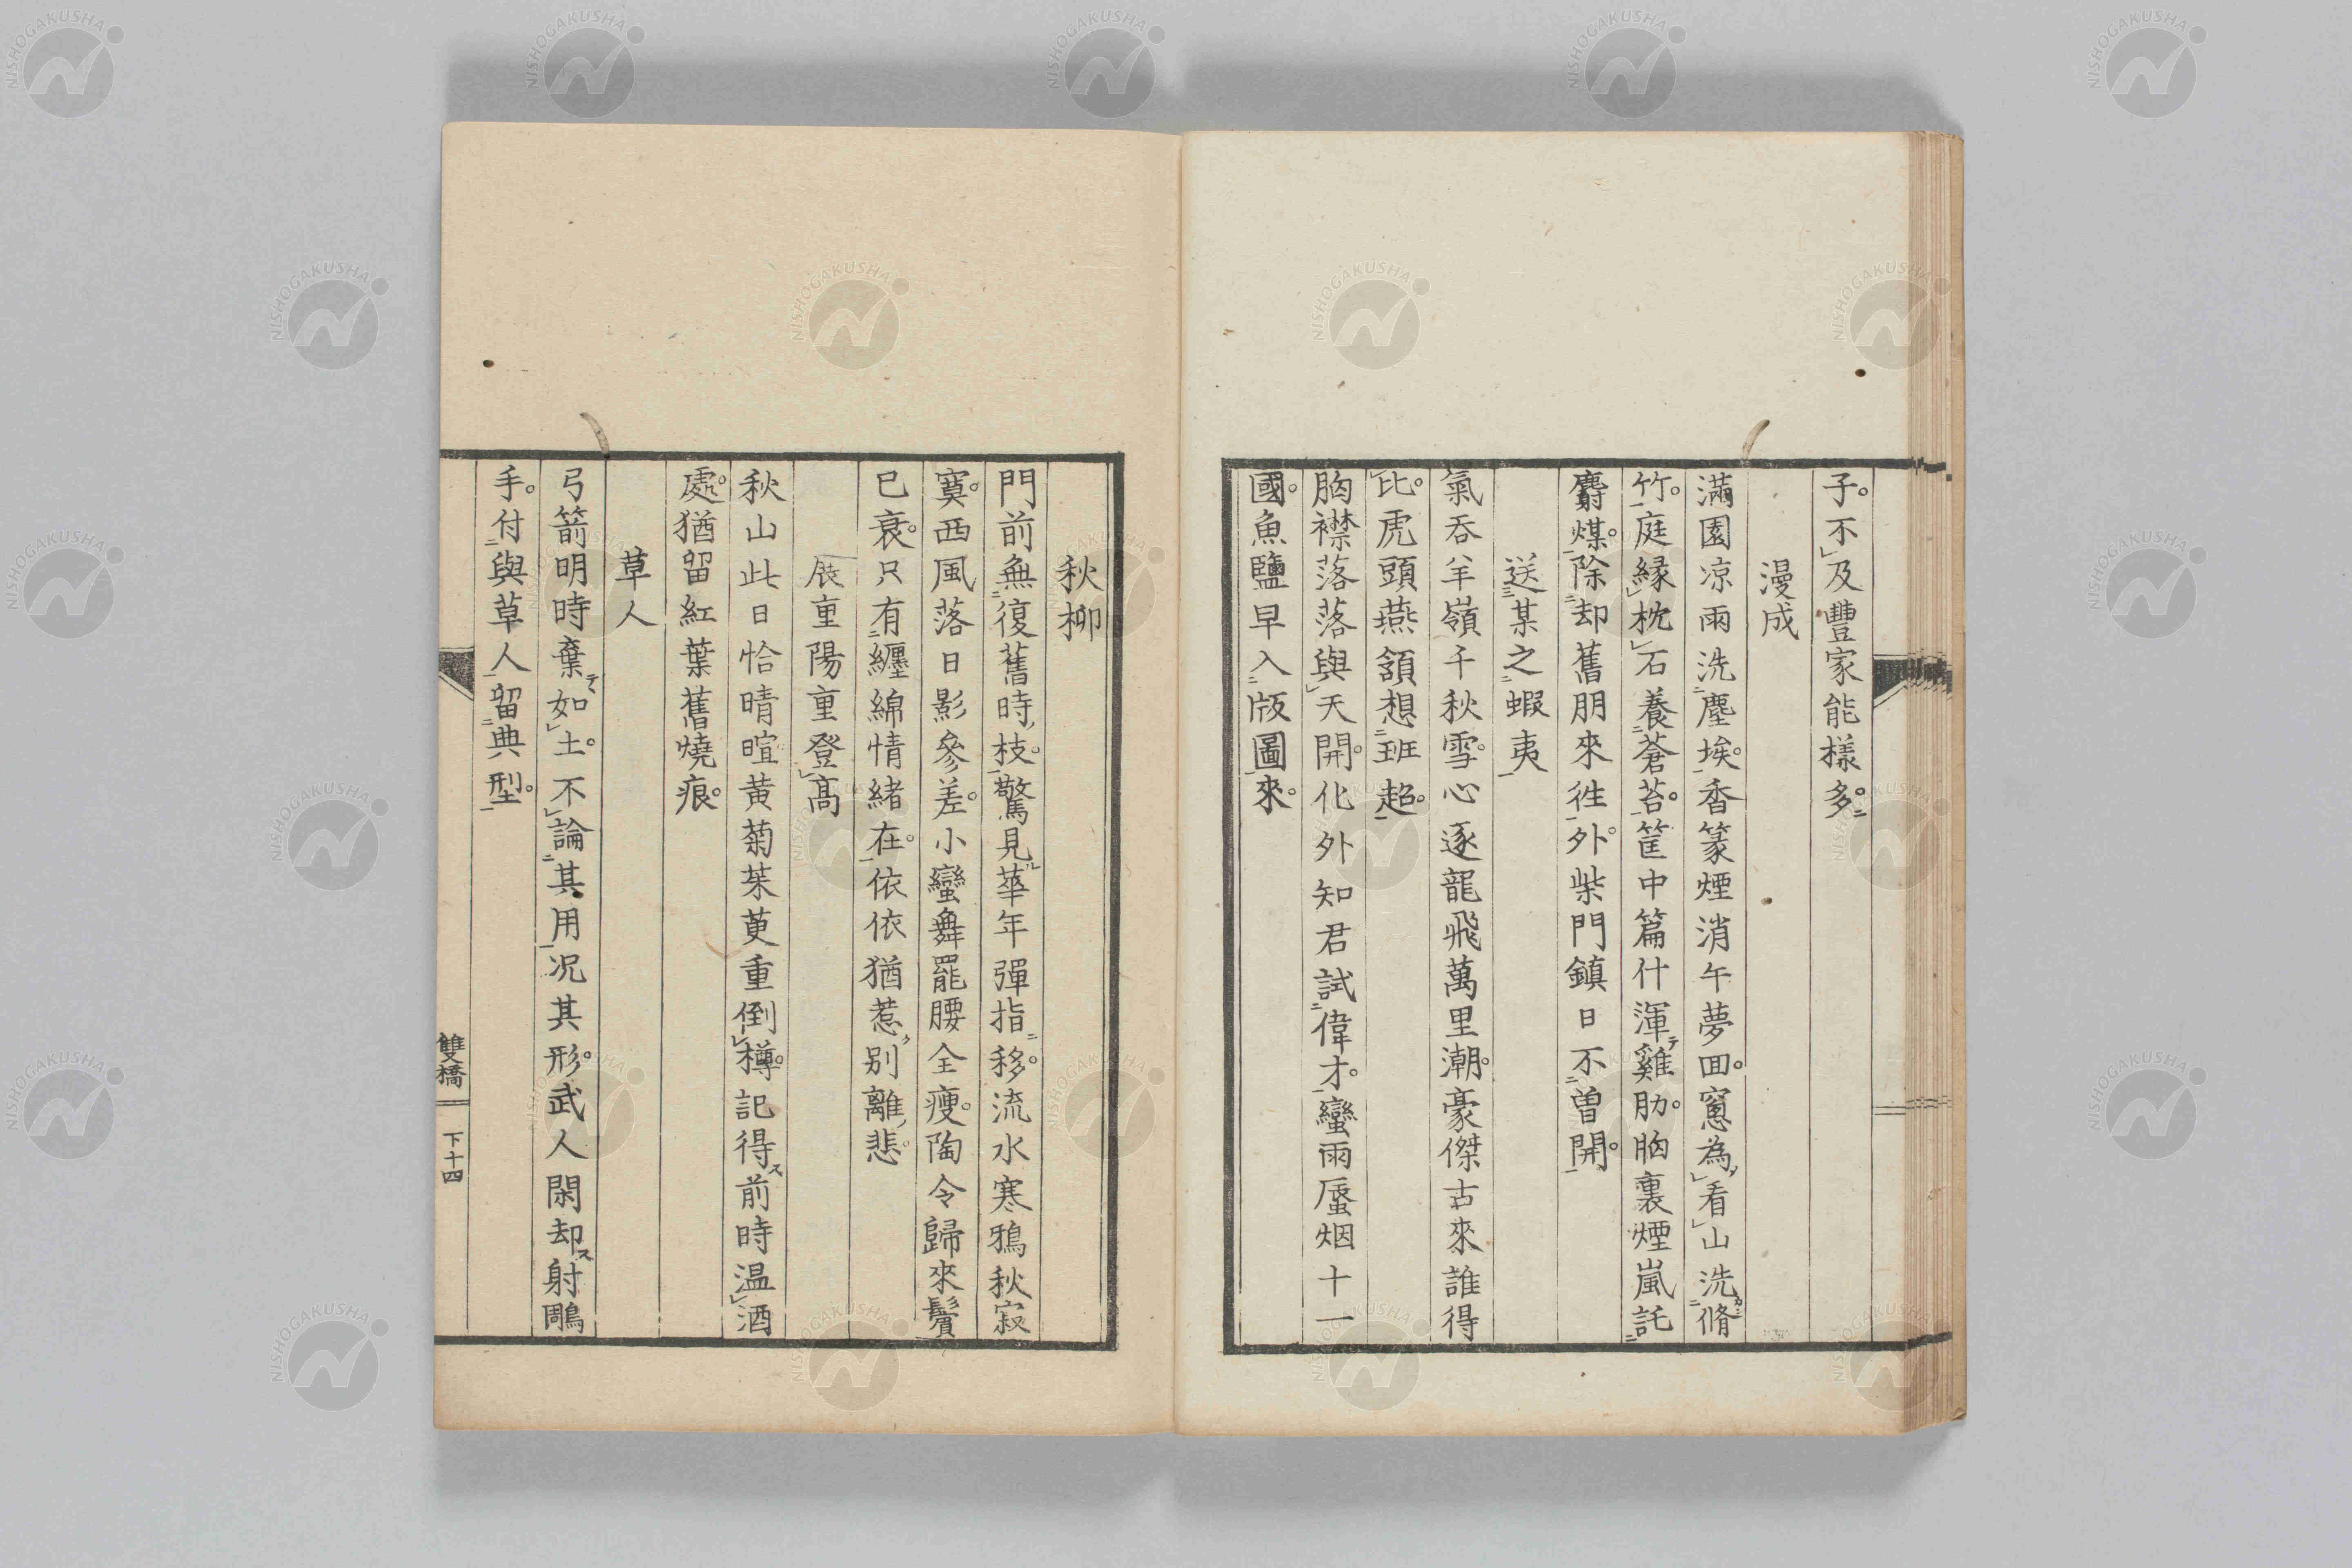 子。不及豐家能樣多。
漫成
滿園凉雨洗塵埃。香篆煙消午夢回。窻為看山洗脩
竹。庭緣枕石養蒼苔。筐中篇什渾雞肋。胸裏煙嵐託
麝煤。除却舊朋來徃外。柴門鎮日不曽開。
送某之蝦夷
氣吞羊嶺千秋雪。心逐龍飛萬里潮。豪傑古來誰得
比。虎頭燕頷想班超。
胸襟落落與天開。化外知君試偉才。蠻雨蜃烟十一
國。魚鹽早入版圖來。
秋柳
門前無復舊時枝。驚見華年彈指移。流水寒鴉秋寂
寞。西風落日影參差。小蠻舞罷腰全瘦。陶令歸來鬢
已衰。只有纏綿情緒在。依依猶惹別離悲。
展重陽重登高
秋山此日恰晴暄黄菊茱萸重倒樽。記得前時温酒
處。猶留紅葉舊燒痕。
草人
弓箭明時棄如土。不論其用况其形。武人閑却射鵰
手。付與草人留典型。
雙橋
下十四
NISHOGAKUSHA